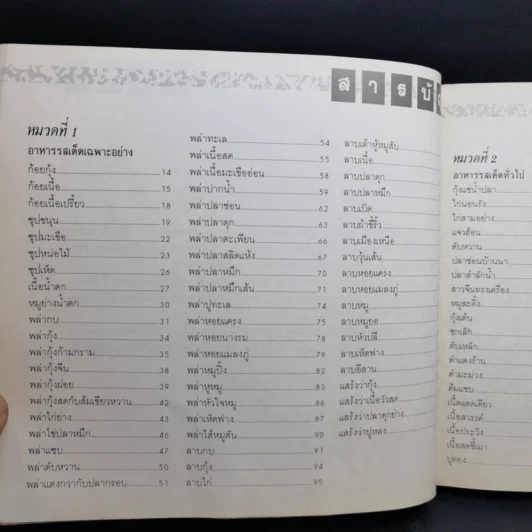 สารบั
หมวดที่ 1
อาหารรสเด็ดเฉพาะอย่าง
ก้อยกุ้ง 14
ก้อยเนื้อ 15
ก้อยเนื้อเปรี้ยว 18
ซุปขนุน 19
ซุปมะเขือ 22
ซุปหน่อไม้ 23
ซุปเห็ด 26
เนื้อน้ำตก 27
หมูย่างน้ำตก 30
พล่ากบ 31
พล่ากุ้ง 34
พล่ากุ้งก้ามกราม 35
พล่ากุ้งจีน 38
พล่ากุ้งฝอย 39
พล่ากุ้งสดกับส้มเขียวหวาน 42
พล่าไก่ย่าง 43
พล่าไข่ปลาหมึก 46
พล่าแซบ 47
พล่าตับหวาน 50
พล่าแตงกวากับปลากรอบ 51
พล่าทะเล 54
พล่าเนื้อสด 55
พล่าเนื้อมะเขืออ่อน 58
พล่าปากน้ำ 59
พล่าปลาช่อน 62
พล่าปลาดุก 63
พล่าปลาตะเพียน 66
พล่าปลาสลิดแห้ง 67
พล่าปลาหมึก 70
พล่าปลาหมึกเส้น 71
พล่าปูทะเล 74
พล่าหอยแครง 75
พล่าหอยนางรม 78
พล่าหอยแมลงภู่ 79
พล่าหมูปิ้ง 82
พล่าหูหมู 83
พล่าหัวใจหมู 86
พล่าเห็ดฟาง 87
พล่าไส้หมูตัน 90
ลาบกบ 91
ลาบกุ้ง 94
ลาบไก่ 95
ลาบเต้าหู้หมูสับ
ลาบเนื้อ
ลาบปลาดุก
ลาบปลาหมึก
ลาบเป็ด
ลาบผ้าขี้ริ้ว
ลาบเมืองเหนือ
ลาบวุ้นเส้น
ลาบหอยแครง
ลาบหอยแมลงภู่
ลาบหมู
ลาบหมูยอ
ลาบหัวปลี
ลาบเห็ดฟาง
ลาบอีสาน
แสร้งว่ากุ้ง
แสร้งว่าเนื้อวัวสด
แสร้งว่าปลาดุกย่าง
แสร้งว่าปูหลง
หมวดที่ 2
อาหารรสเด็ดทั่วไป
กุ้งแช่น้ำปลา
ไก่นอนรัง
ไก่สามอย่าง
แจ่วฮ้อน
ตับหวาน
ปลาช่อนบ้านนา
ปลาสำลักน้ำ
สาวจันทรงเครื่อง
หมูสะดุ้ง
กุ้งเต้น
ซกเล็ก
ตับเหล็ก
ตำแตงร้าน
ตำมะม่วง
ต้มแซบ
เนื้อแดดเดียว
เนื้อสวรรค์
เนื้อสดขี้เมา
ปูดอง